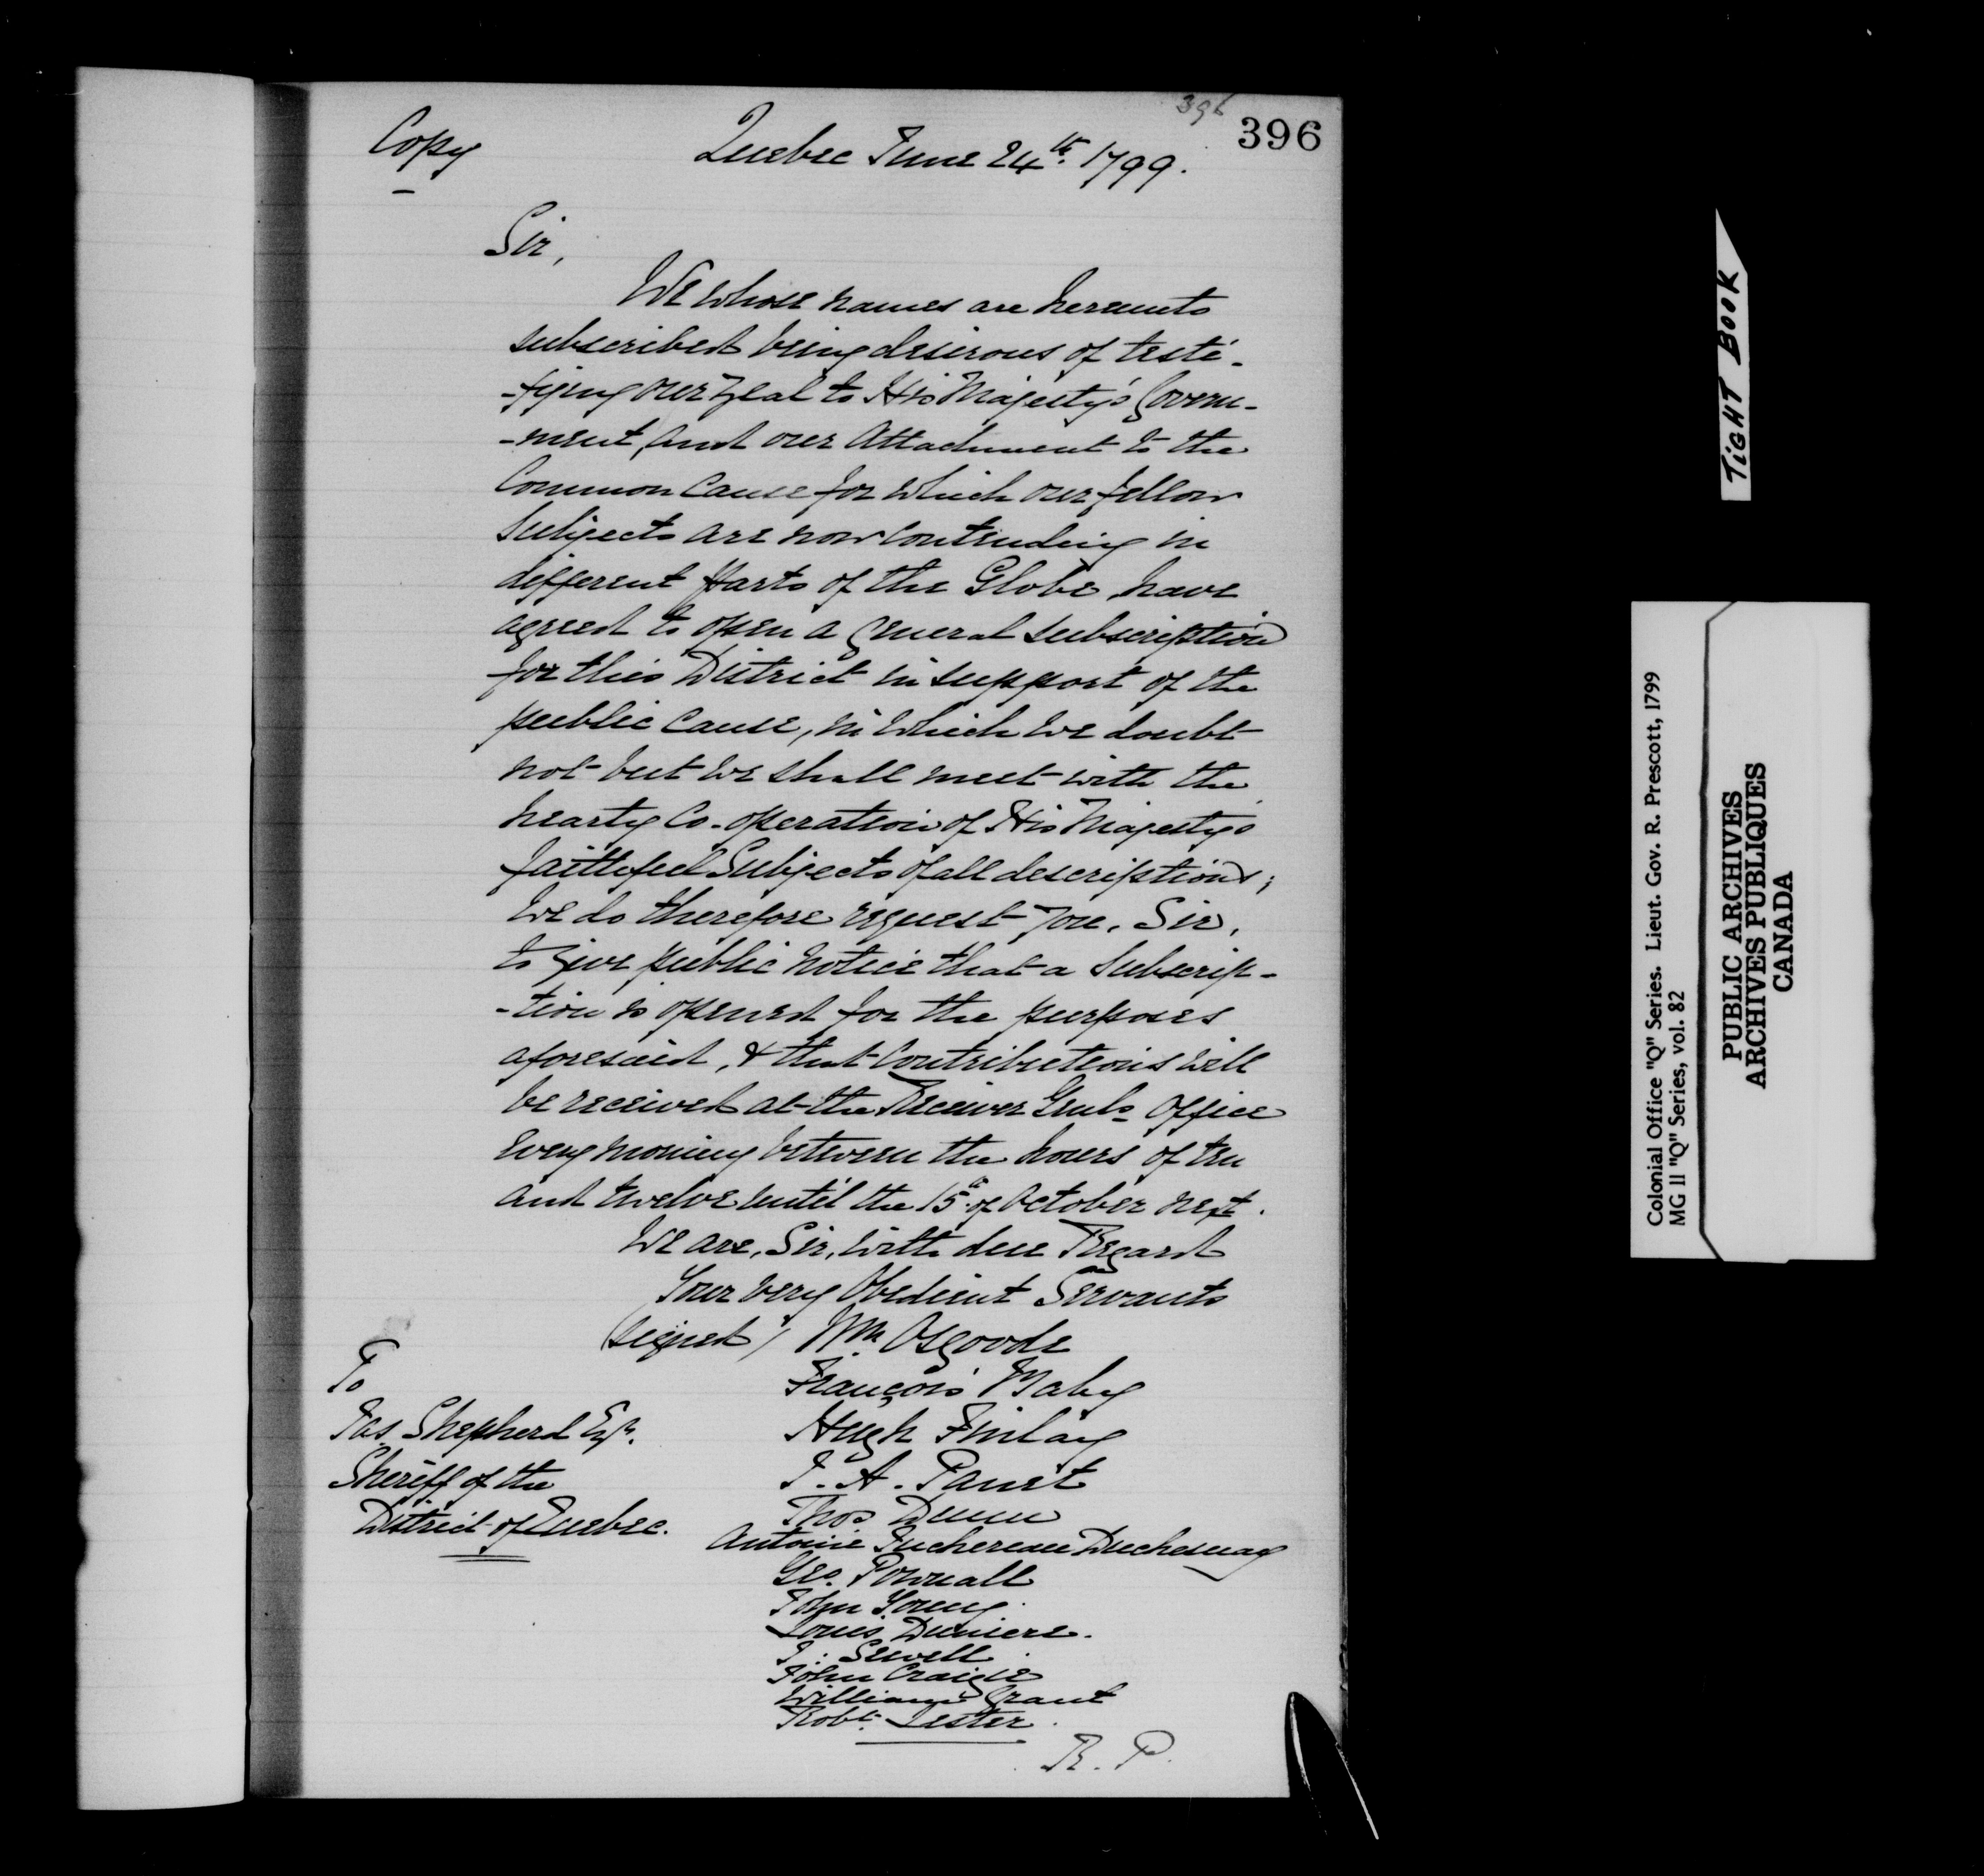 396
396
Copy
Quebec June 24th. 1799.
Sir,
We whose names are hereunto
subscribed being desirous of testi-
-fying our zeal to His Majesty's Govern-
-ment, and our Attachment to the
Common Cause for which our fellow
Subjects are now Contending in
different parts of the Globe, have
agreed to open a General Subscription
for this District in support of the
public Cause, in which we doubt
not but we shall meet with the
hearty Co-operation of His Majestys
faithful Subjects of all descriptions;
We do therefore request you, Sir,
to give public notice that a Subscrip-
-tion is opened for the purposes
aforesaid, & that Contributions will
be received at the Receiver Genls Office
every morning between the hours of ten
and twelve until the 15th of October next.
We are, Sir, with due Regard
Your very Obedient Servants
(signed) Wm. Osgoode
François Baby
Hugh Finlay
J. A. Panet
Thos Dunn
Antoine Juchereau Duchesnay
Geo. Pownall
John Young.
Louis Duniere.
J: Sewell
John Craigie
William Grant
Robt. Lester.
To
Jas Shepherd Esqr.
Sheriff of the
District of Quebec.
R. P.
TIGHT BOOK
Colonial Office "Q" Series. Lieut. Gov. R. Prescott, 1799
MG II "Q" Series, vol. 82
PUBLIC ARCHIVES
ARCHIVES PUBLIQUES
CANADA